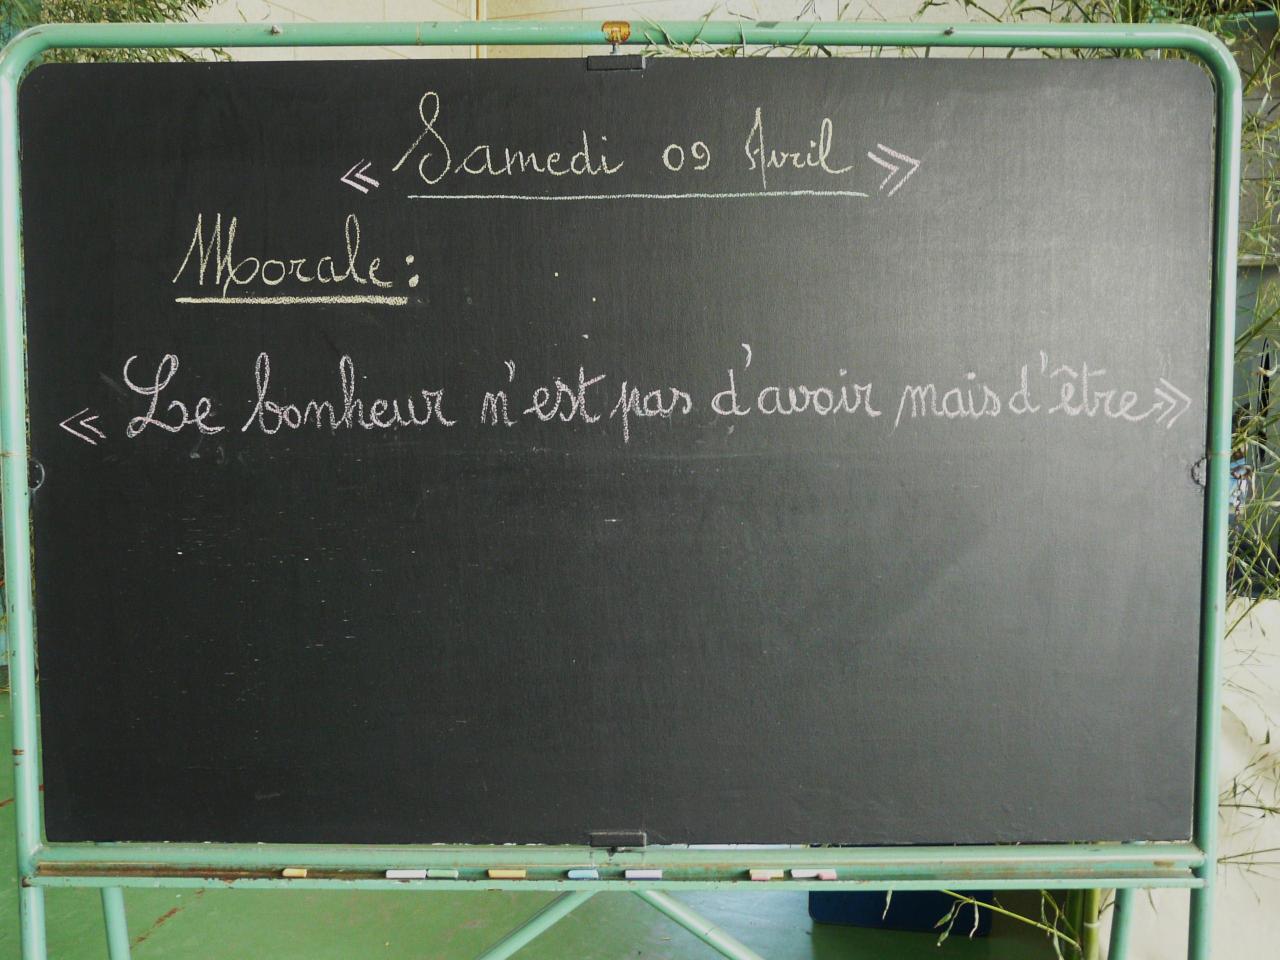 « Samedi 09 Avril »
Morale :
« Le bonheur n'est pas d'avoir mais d'être »